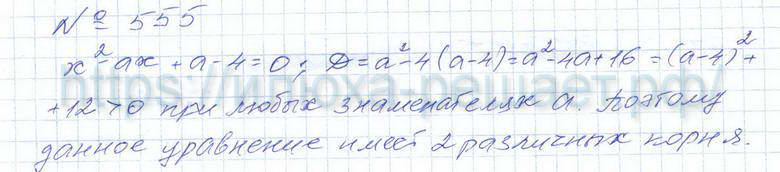 № 555
x² - ax + a - 4 = 0; D = a² - 4(a - 4) = a² - 4a + 16 = (a - 4)² +
+ 12 > 0 при любых знаменателях a. Поэтому
данное уравнение имеет 2 различных корня.
https://илюха-решает.рф/